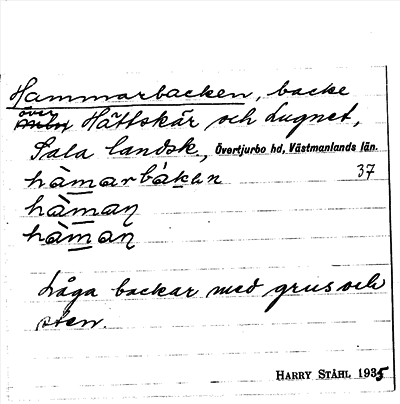 Hammarbacken, backe
över Hättskär och Lugnet,
Sala landsk., Övertjurbo hd, Västmanlands län.
hàmarbákan 37
hàmaƞ
hàmaƞ
Låga backar med grus och
sten.
HARRY STÅHL 1935